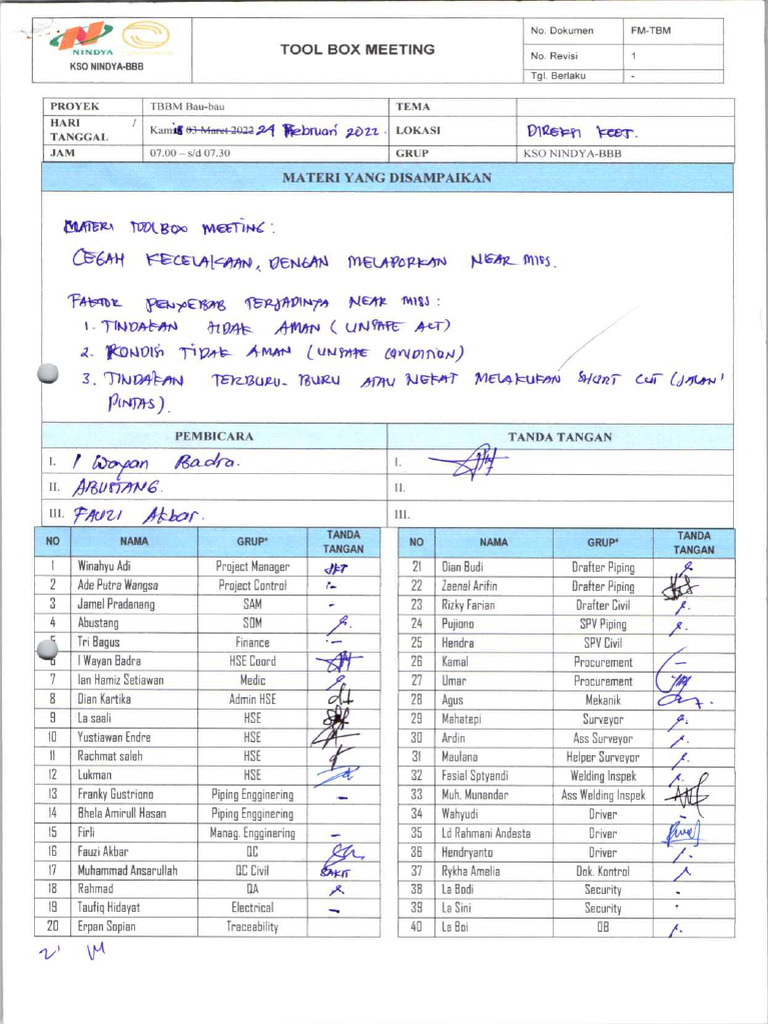 NINDYA
KSO NINDYA-BBB
TOOL BOX MEETING
No. Dokumen FM-TBM
No. Revisi 1
Tgl. Berlaku -
PROYEK TBBM Bau-bau TEMA
HARI / TANGGAL Kamis 03 Maret 2022 24 Februari 2022. LOKASI DIREKSI KEET.
JAM 07.00 – s/d 07.30 GRUP KSO NINDYA-BBB
MATERI YANG DISAMPAIKAN
MATERI TOOLBOX MEETING:
CEGAH KECELAKAAN, DENGAN MELAPORKAN NEAR MISS.
FAKTOR PENYEBAB TERJADINYA NEAR MISS:
1. TINDAKAN TIDAK AMAN (UNSAFE ACT)
2. KONDISI TIDAK AMAN (UNSAFE CONDITION)
3. TINDAKAN TERBURU-BURU ATAU NEKAT MELAKUKAN SHORT CUT (JALAN
PINTAS).
PEMBICARA TANDA TANGAN
I. I Wayan Badra. I.
II. ABUSTANG. II.
III. FAUZI Akbar. III.
NO NAMA GRUP* TANDA TANGAN NO NAMA GRUP* TANDA TANGAN
1 Winahyu Adi Project Manager 21 Dian Budi Drafter Piping
2 Ade Putra Wangsa Project Control 22 Zaenal Arifin Drafter Piping
3 Jamel Pradanang SAM - 23 Rizky Farian Drafter Civil
4 Abustang SOM 24 Pujiono SPV Piping
5 Tri Bagus Finance 25 Hendra SPV Civil
6 I Wayan Badra HSE Coord 26 Kamal Procurement -
7 Ian Hamiz Setiawan Medic 27 Umar Procurement
8 Dian Kartika Admin HSE 28 Agus Mekanik
9 La saali HSE 29 Mahatepi Surveyor
10 Yustiawan Endre HSE 30 Ardin Ass Surveyor
11 Rachmat saleh HSE 31 Maulana Helper Surveyor
12 Lukman HSE 32 Fasial Sptyandi Welding Inspek
13 Franky Gustriono Piping Engginering - 33 Muh. Munandar Ass Welding Inspek
14 Bhela Amirull Hasan Piping Engginering 34 Wahyudi Driver -
15 Firli Manag. Engginering - 35 Ld Rahmani Andesta Driver
16 Fauzi Akbar QC 36 Hendryanto Driver
17 Muhammad Ansarullah QC Civil SAKIT 37 Rykha Amelia Dok. Kontrol
18 Rahmad QA 38 La Bodi Security -
19 Taufiq Hidayat Electrical - 39 La Sini Security -
20 Erpan Sopian Traceability 40 La Boi OB